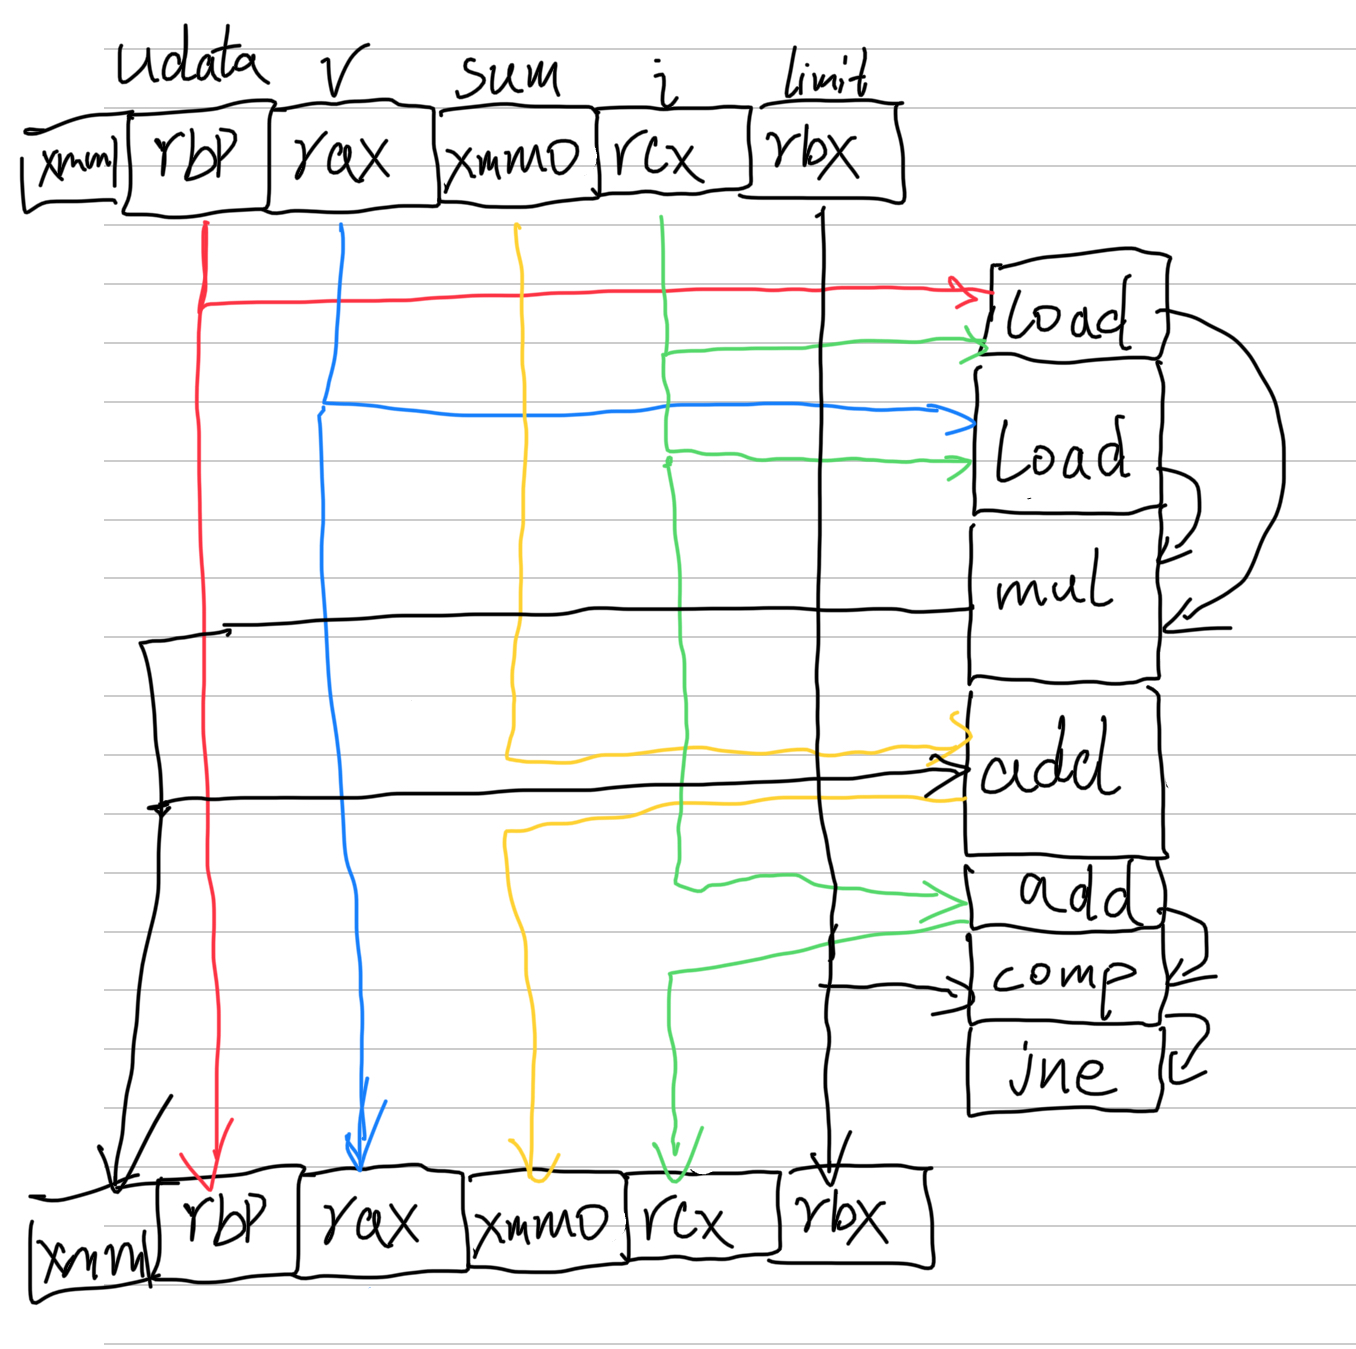 udata V sum i limit
xmm1 rbp rax xmm0 rcx rbx
load
Load
mul
add
add
comp
jne
xmm1 rbp rax xmm0 rcx rbx